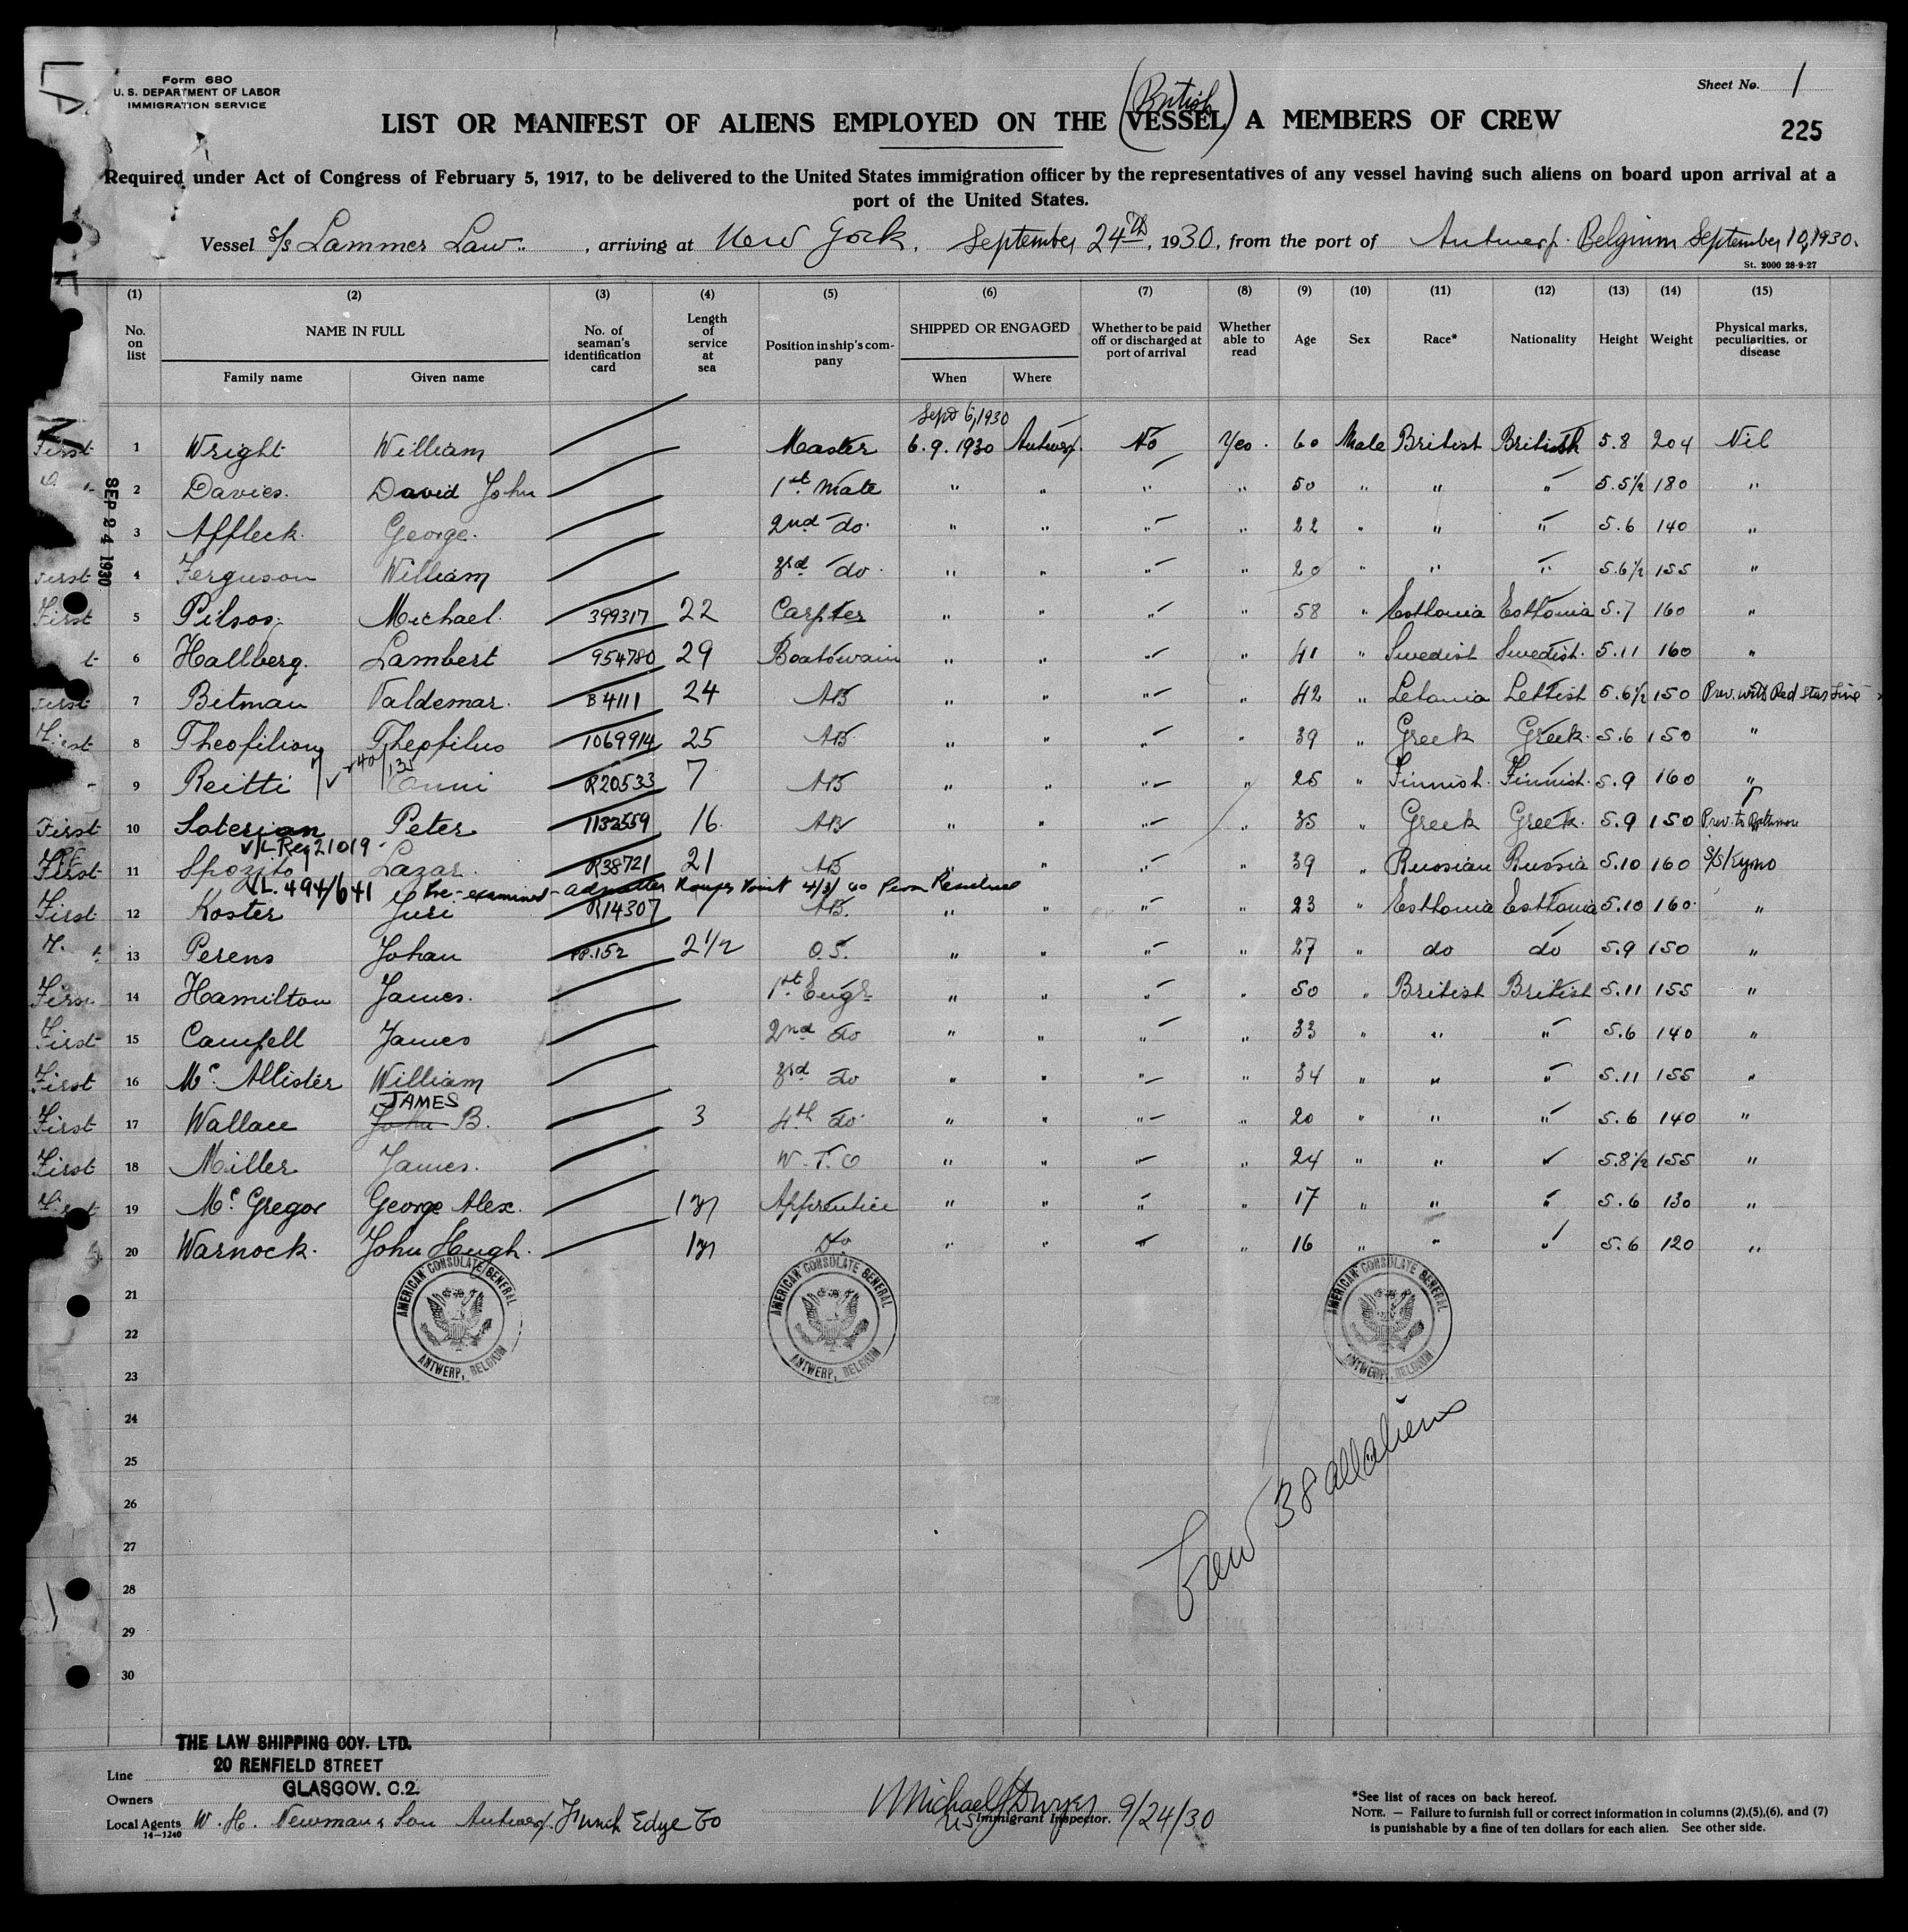 Form 680
U. S. DEPARTMENT OF LABOR
IMMIGRATION SERVICE
Sheet No. 1
(British)
LIST OR MANIFEST OF ALIENS EMPLOYED ON THE (VESSEL) A MEMBERS OF CREW
225
Required under Act of Congress of February 5, 1917, to be delivered to the United States immigration officer by the representatives of any vessel having such aliens on board upon arrival at a
port of the United States.
Vessel S/s Lammer Law, arriving at New York, September 24th, 1930, from the port of Antwerp. Belgium September 10, 1930.
St. 2000 28-9-27
(1) (2) (3) (4) (5) (6) (7) (8) (9) (10) (11) (12) (13) (14) (15)
No. on list NAME IN FULL No. of seaman's identification card Length of service at sea Position in ship's company SHIPPED OR ENGAGED Whether to be paid off or discharged at port of arrival Whether able to read Age Sex Race* Nationality Height Weight Physical marks, peculiarities, or disease
Family name Given name When Where
Sept 6, 1930
First 1 Wright William Master 6.9.1930 Antwerp. No Yes. 60 Male British British 5.8 204 Nil
2 Davies. David John 1st Mate " " " " 50 " " " 5.5½ 180 "
3 Affleck. George. 2nd do. " " " " 22 " " " 5.6 140 "
First 4 Ferguson William 3rd do. " " " " 20 " " " 5.6½ 155 "
First 5 Pilsos. Michael. 399317 22 Carpter " " " " 58 " Esthonia Esthonia 5.7 160 "
6 Hallberg. Lambert 954780 29 Boatswain " " " " 41 " Swedish Swedish. 5.11 160 "
First 7 Bitman Valdemar. B4111 24 AB " " " 42 " Letonia Lettish 5.6½ 150 Prev. with Red Star Line
First 8 Theofiliou Theofilus 1069914 25 AB " " " " 39 " Greek Greek. 5.6 150 "
9 Reitti R20533 7 AB " " " " 25 " Finnish. Finnish. 5.9 160 "
First 10 Soterian Peter 1132559 16 AB " " " " 35 " Greek Greek. 5.9 150 Prev. to Baltimore
V/L Reg 21019
First 11 Spozito Lazar. R38721 21 AB " " " " 39 " Russian Russia 5.10 160 S/S Kymo
V/L. 494/641 Pre-examined- admitted Rouses Point 4/3/40 Perm Residence
First 12 Koster Juri R14307 AB. " " " " 23 " Esthonia Esthonia 5.10 160. "
13 Perens Johan PP.152 2½ O.S. " " " " 27 " do do 5.9 150 "
First 14 Hamilton James. 1st Engr " " " " 50 " British British 5.11 155 "
First 15 Campell James 2nd do " " " " 33 " " " 5.6 140 "
First 16 Mc. Allister William 3rd do " " " " 34 " " " 5.11 155 "
JAMES
First 17 Wallace John B. 3 4th do. " " " " 20 " " " 5.6 140 "
First 18 Miller James. W.T.O " " " " 24 " " 5.8½ 155 "
First 19 Mc. Gregor George Alex. 1yr Apprentice " " " " 17 " " " 5.6 130 "
20 Warnock. John Hugh. 1yr Do " " " " 16 " " " 5.6 120 "
SEP 24 1930
AMERICAN CONSULATE GENERAL ANTWERP, BELGIUM
AMERICAN CONSULATE GENERAL ANTWERP, BELGIUM
AMERICAN CONSULATE GENERAL ANTWERP, BELGIUM
21
22
23
24
25
26
27
28
29
30
Crew 38 all aliens
THE LAW SHIPPING COY. LTD.
20 RENFIELD STREET
GLASGOW. C.2.
Line
Owners
Local Agents W. H. Newman & Son Antwerp. Funch Edye Co
14-1240
Michael J Dwyer 9/24/30
US Immigrant Inspector.
*See list of races on back hereof.
NOTE. — Failure to furnish full or correct information in columns (2),(5),(6), and (7)
is punishable by a fine of ten dollars for each alien. See other side.